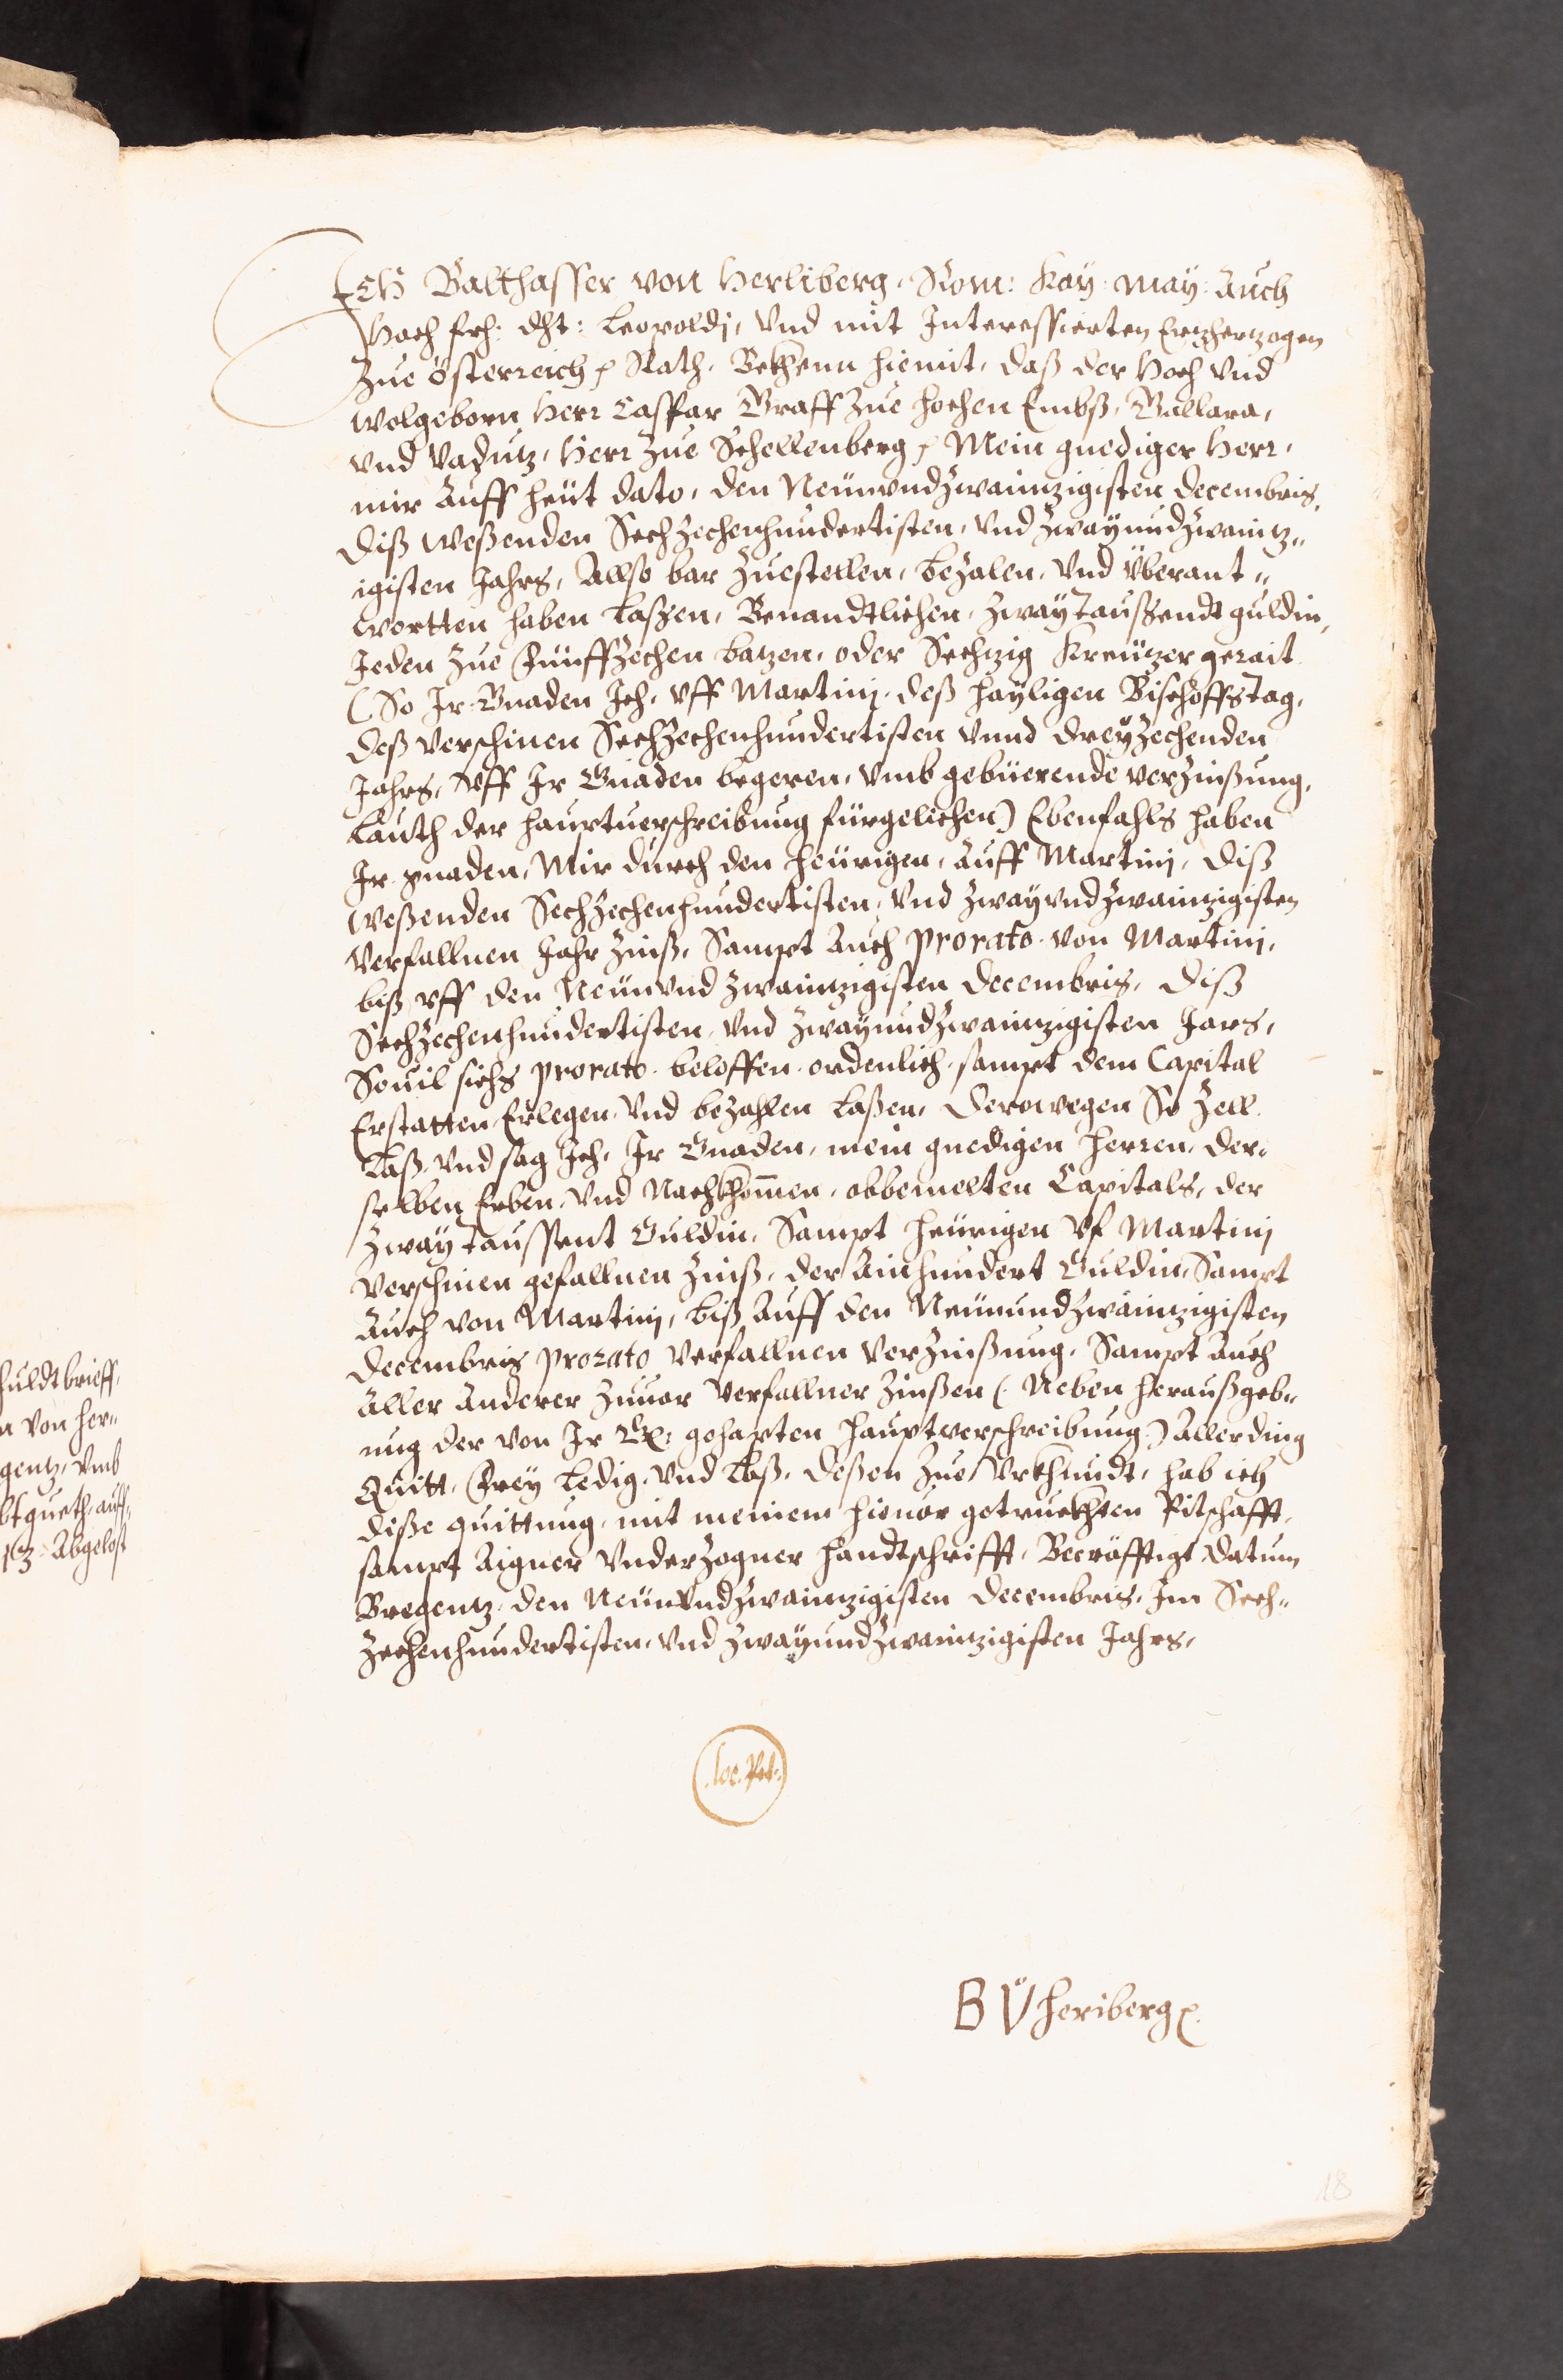 Ich Balthasser von Herliberg, Röm: Kay: May: auch
Hoch frh: dht: Leopoldj, vnd mit Interessierten Ertzhertzogen
zue Österreich Rath, Bekhenn hiemit, daß der Hoch vnd
wolgeborn Herr Caspar Graff zue hochen Embß, Gallara,
vnd Vadutz, Herr zue Schellenberg Mein gnediger Herr,
mir auff heüt dato, den Neünvndzwaintzigisten decembris,
diß weßenden Sechzechenhundertisten, vnd zwayundzwaintz„
igisten Jahrs, Allso bar zuestellen, bezalen, vnd überant„
wortten haben laßen, Benandtlichen, zwaytaußendt guldin,
Jeden zue Fünffzechen batzen, oder Sechtzig Kreützer gerait
(So Ir Gnaden Ich, vff Martinj, deß hayligen Bischoffs tag,
deß verschinen Sechzechenhundertisten vnnd dreyzechenden
Jahrs, vff Ir Gnaden begeren, vmb gebüerende verzinßung,
lauth der hauptuerschreibung fürgelichen) Ebenfahls haben
Ir gnaden, Mir durch den heürigen, auff Martinj, diß
weßenden Sechzechenhundertisten, vnd zwayvndzwaintzigisten
verfallnen Jahr Zinß, Sampt auch prorato von Martinj,
biß vff den Neünvnd zwaintzigisten decembris, diß
Sechzechenhundertisten, vnd zwayundzwaintzigisten Jars,
Souil sichs prorato beloffen ordenlich, sampt dem Capital
Erstatten Erlegen, vnd bezahlen laßen, derowegen So zell
laß, vnd sag Ich, Ir Gnaden, mein gnedigen Herren, der„
selben Erben, vnd Nachkhomen, obbemelten Capitals, der
zway taussent Guldin, Sampt heürigen vf Martinj
verschinen gefallnen Zinß, der Ainhundert Guldin, Sampt
auch von Martinj, biß auff den Neünundzwaintzigisten
decembris prorato verfallnen verzinßung, Sampt auch
aller anderer zuuor verfallner Zinßen (Neben heraußgeb„
nug der von Ir gehapten hauptverschreibung) allerding
Quitt, Frey ledig, vnd laß, deßen zue Vrkhundt, hab ich
diße quittung, mit meinem hieuor getruckhten Pitschafft,
sampt aigner vnderzogner handtschrifft, Becräfftigt, datum
Bregentz, den Neünvndzwaintzigisten decembris, Im Sech„
zechenhundertisten, vnd zwayundzwaintzigisten Jahrs,
loc. Pit:
B V heriberg
18
huldtbrieff,
n von her„
gentz, vmb
gueth, auff„
Abgelost